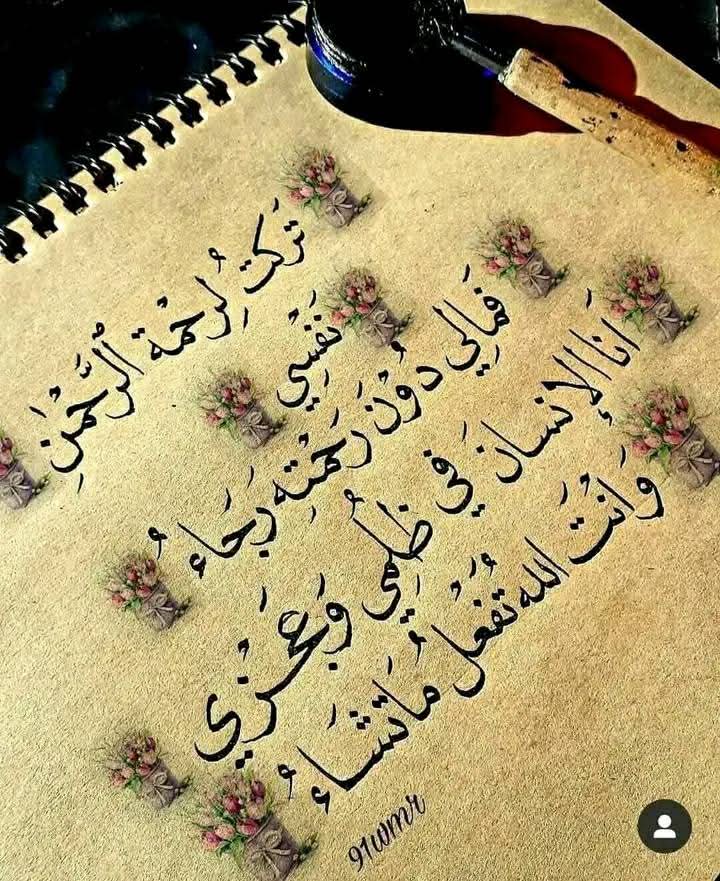 تَركتُ لِرحْمة الرَّحْمٰنِ
نَفْسِي
فَمالي دُوْنَ رَحْمتِه رَجَاءُ
أنَا الإنسانَ في ظُلِمي وَعجْزي
وَانْتَ الله تَفْعَلُ مَاتشَاءُ
91wmr